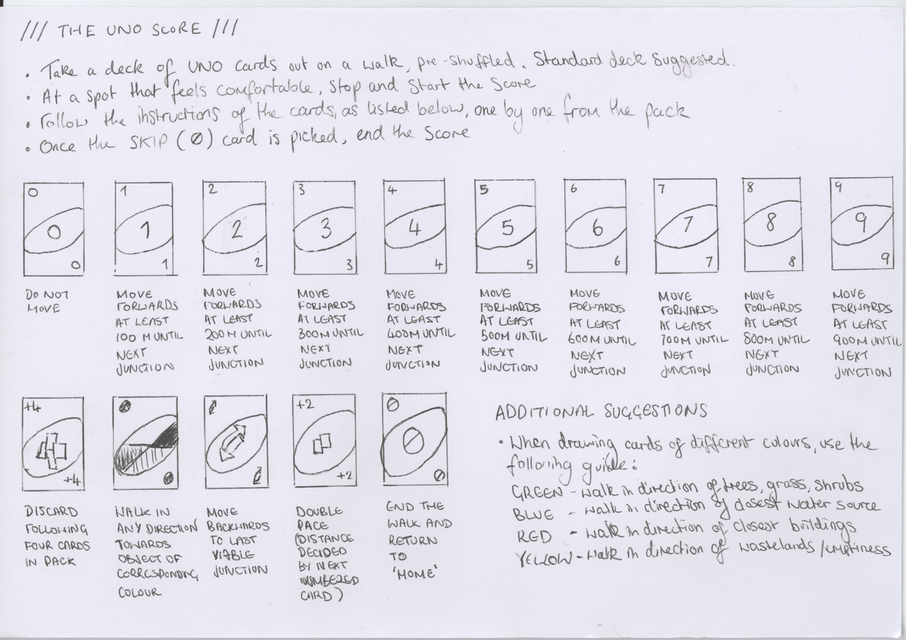 /// THE UNO SCORE ///
• Take a deck of UNO cards out on a walk, pre-shuffled. Standard deck suggested.
• At a spot that feels comfortable, Stop and Start the Score
• Follow the instructions of the cards, as listed below, one by one from the pack
• Once the SKIP (Ø) card is picked, end the Score
0
0
0
DO NOT
MOVE
1
1
1
MOVE
FORWARDS
AT LEAST
100 M UNTIL
NEXT
JUNCTION
2
2
2
MOVE
FORWARDS
AT LEAST
200M UNTIL
NEXT
JUNCTION
3
3
3
MOVE
FORWARDS
AT LEAST
300M UNTIL
NEXT
JUNCTION
4
4
4
MOVE
FORWARDS
AT LEAST
400M UNTIL
NEXT
JUNCTION
5
5
5
MOVE
FORWARDS
AT LEAST
500M UNTIL
NEXT
JUNCTION
6
6
6
MOVE
FORWARDS
AT LEAST
600M UNTIL
NEXT
JUNCTION
7
7
7
MOVE
FORWARDS
AT LEAST
700M UNTIL
NEXT
JUNCTION
8
8
8
MOVE
FORWARDS
AT LEAST
800M UNTIL
NEXT
JUNCTION
9
9
9
MOVE
FORWARDS
AT LEAST
900M UNTIL
NEXT
JUNCTION
+4
+4
DISCARD
FOLLOWING
FOUR CARDS
IN PACK
WALK IN
ANY DIRECTION
TOWARDS
OBJECT OF
CORRESPONDING
COLOUR
MOVE
BACKWARDS
TO LAST
VIABLE
JUNCTION
+2
+2
DOUBLE
PACE
(DISTANCE
DECIDED
BY NEXT
NUMBERED
CARD)
Ø
Ø
Ø
END THE
WALK AND
RETURN
TO
'HOME'
ADDITIONAL SUGGESTIONS
• When drawing cards of different colours, use the
following guide:
GREEN - walk in direction of trees, grass, shrubs
BLUE - walk in direction of closest water source
RED - walk in direction of closest buildings
YELLOW - walk in direction of wastelands / emptiness